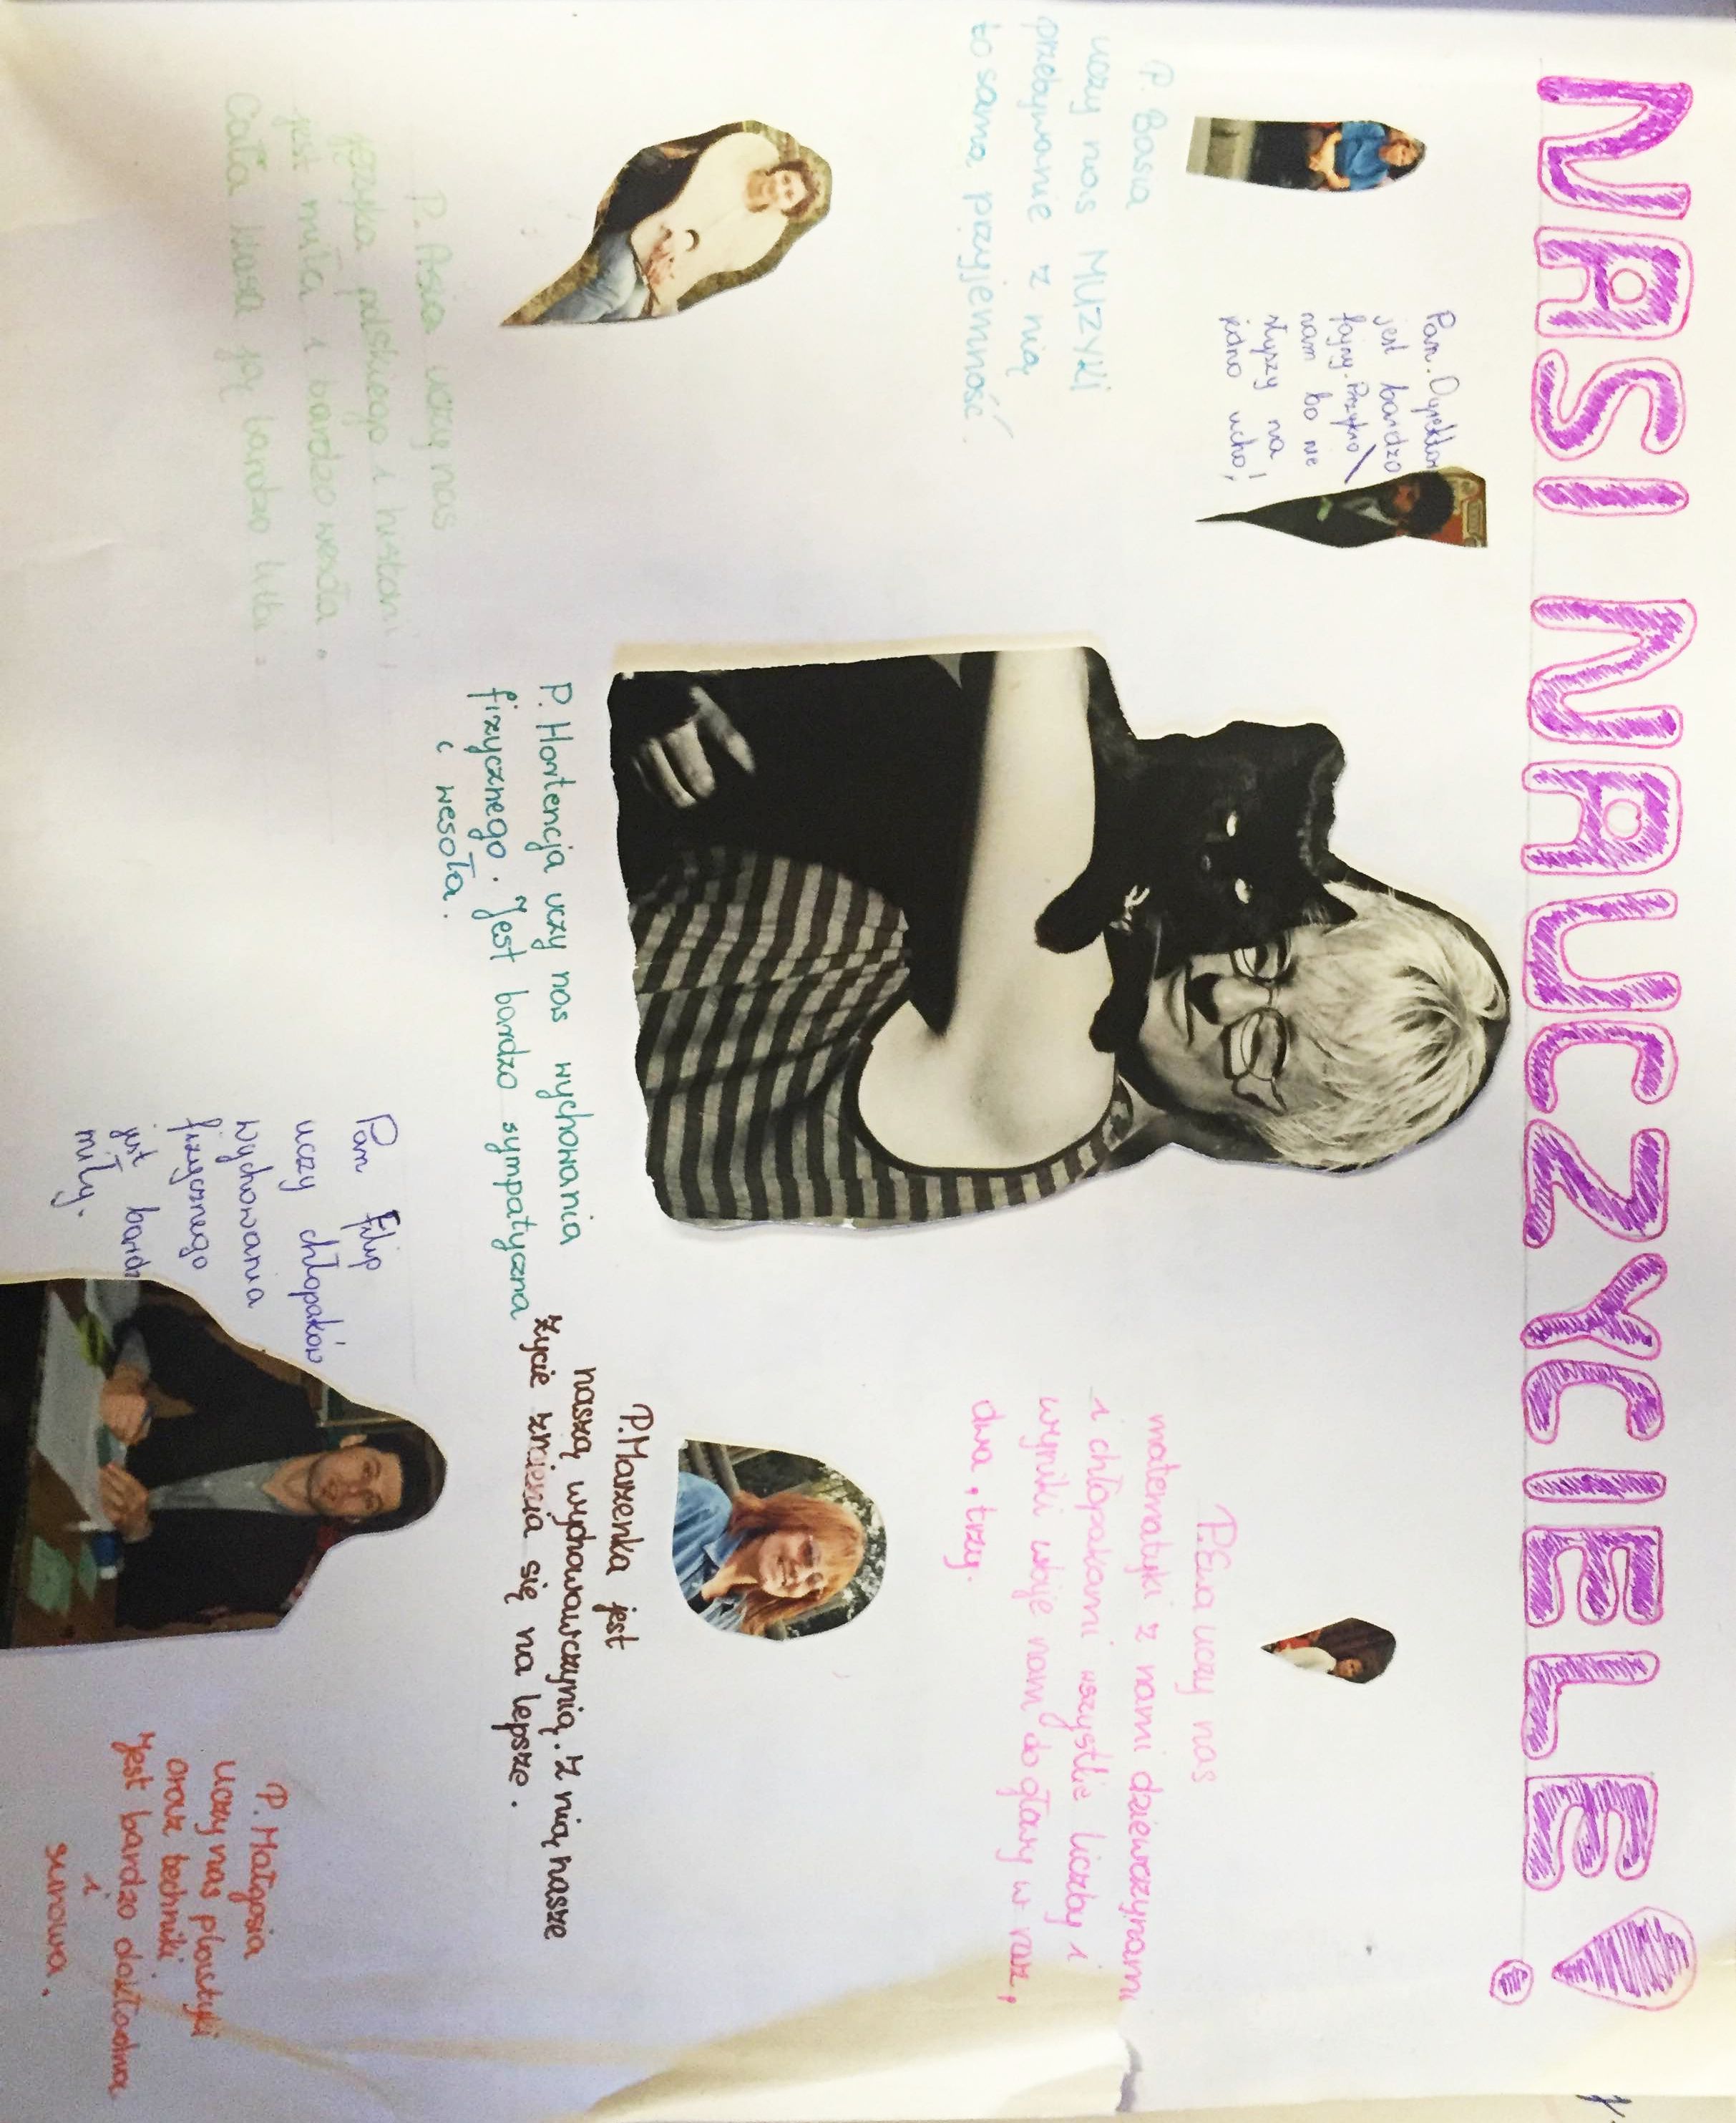 NASI NAUCZYCIELE!
Pan. Dyrektor
jest bardzo
fajny. Przykro
nam bo nie
słyszy na
jedno ucho!
P. Basia
uczy nas MUZYKI
przebywanie z nią
to sama przyjemność.
P. Ewa uczy nas
matematyki z nami dziewczynami
i chłopakami wszystkie liczby i
wyniki wbije nam do głowy w raz,
dwa, trzy.
P. Asia uczy nas
języka polskiego i historii,
jest miła i bardzo wesoła.
Cała klasa ją bardzo lubi.
P. Hortencja uczy nas wychowania
fizycznego. Jest bardzo sympatyczna
i wesoła.
P. Marzenka jest
naszą wychowawczynią. Z nią nasze
życie zmienia się na lepsze.
Pan Filip
uczy chłopaków
wychowania
fizycznego
jest bardz
miły.
P. Małgosia
uczy nas plastyki
oraz techniki
jest bardzo dokładna
i
surowa.